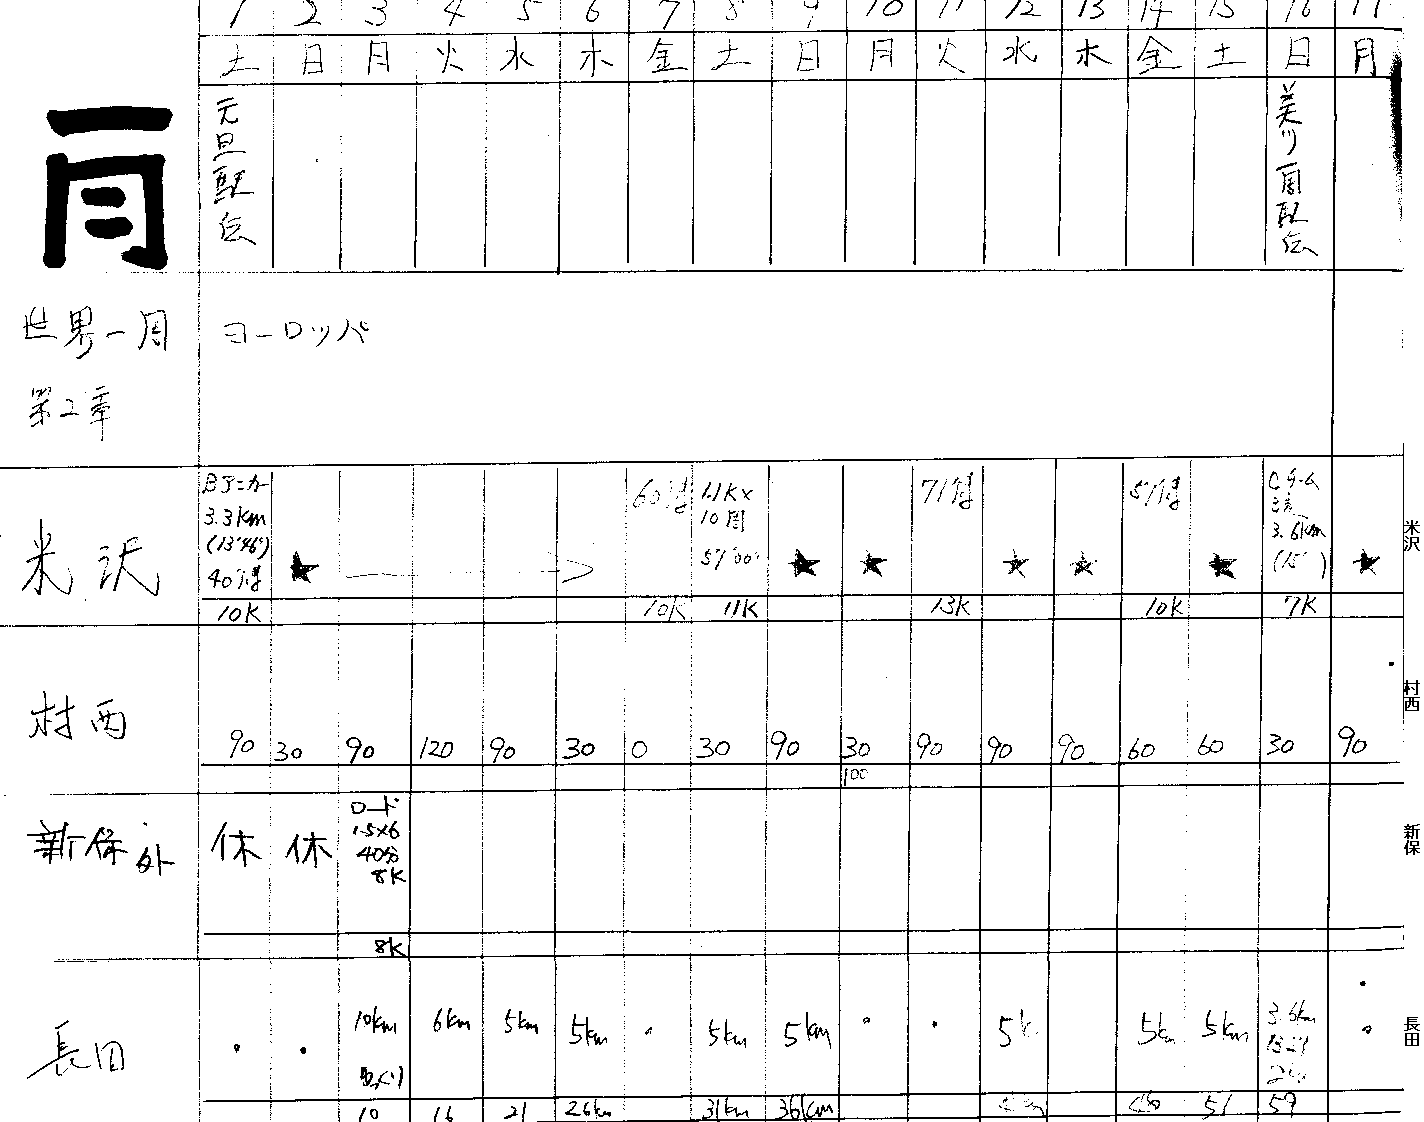 1 2 3 4 5 6 7 8 9 10 11 12 13 14 15 16 17
土 日 月 火 水 木 金 土 日 月 火 水 木 金 土 日 月
一月
元旦駅伝
美川一周駅伝
世界一周
第2章
ヨーロッパ
米沢
Bアンカー
3.3km
(13'46")
40分
10K
★ ★ ★ ★ ★ ★ ★
60分
10K
1.1K×
10周
57'00"
11K
71分
13K
57分
10K
Cチーム
3.6km
(15' )
7K
米沢
村西
90 30 90 120 90 30 0 30 90 30 90 90 90 60 60 30 90
100
村西
新保外
休 休
ロード
1.5×6
40分
8K
8K
新保
長田
10km 6km 5km 5km 5km 5km 5k 5km 5km 3.6km
10 16 21 26km 31km 36km 51 59
長田